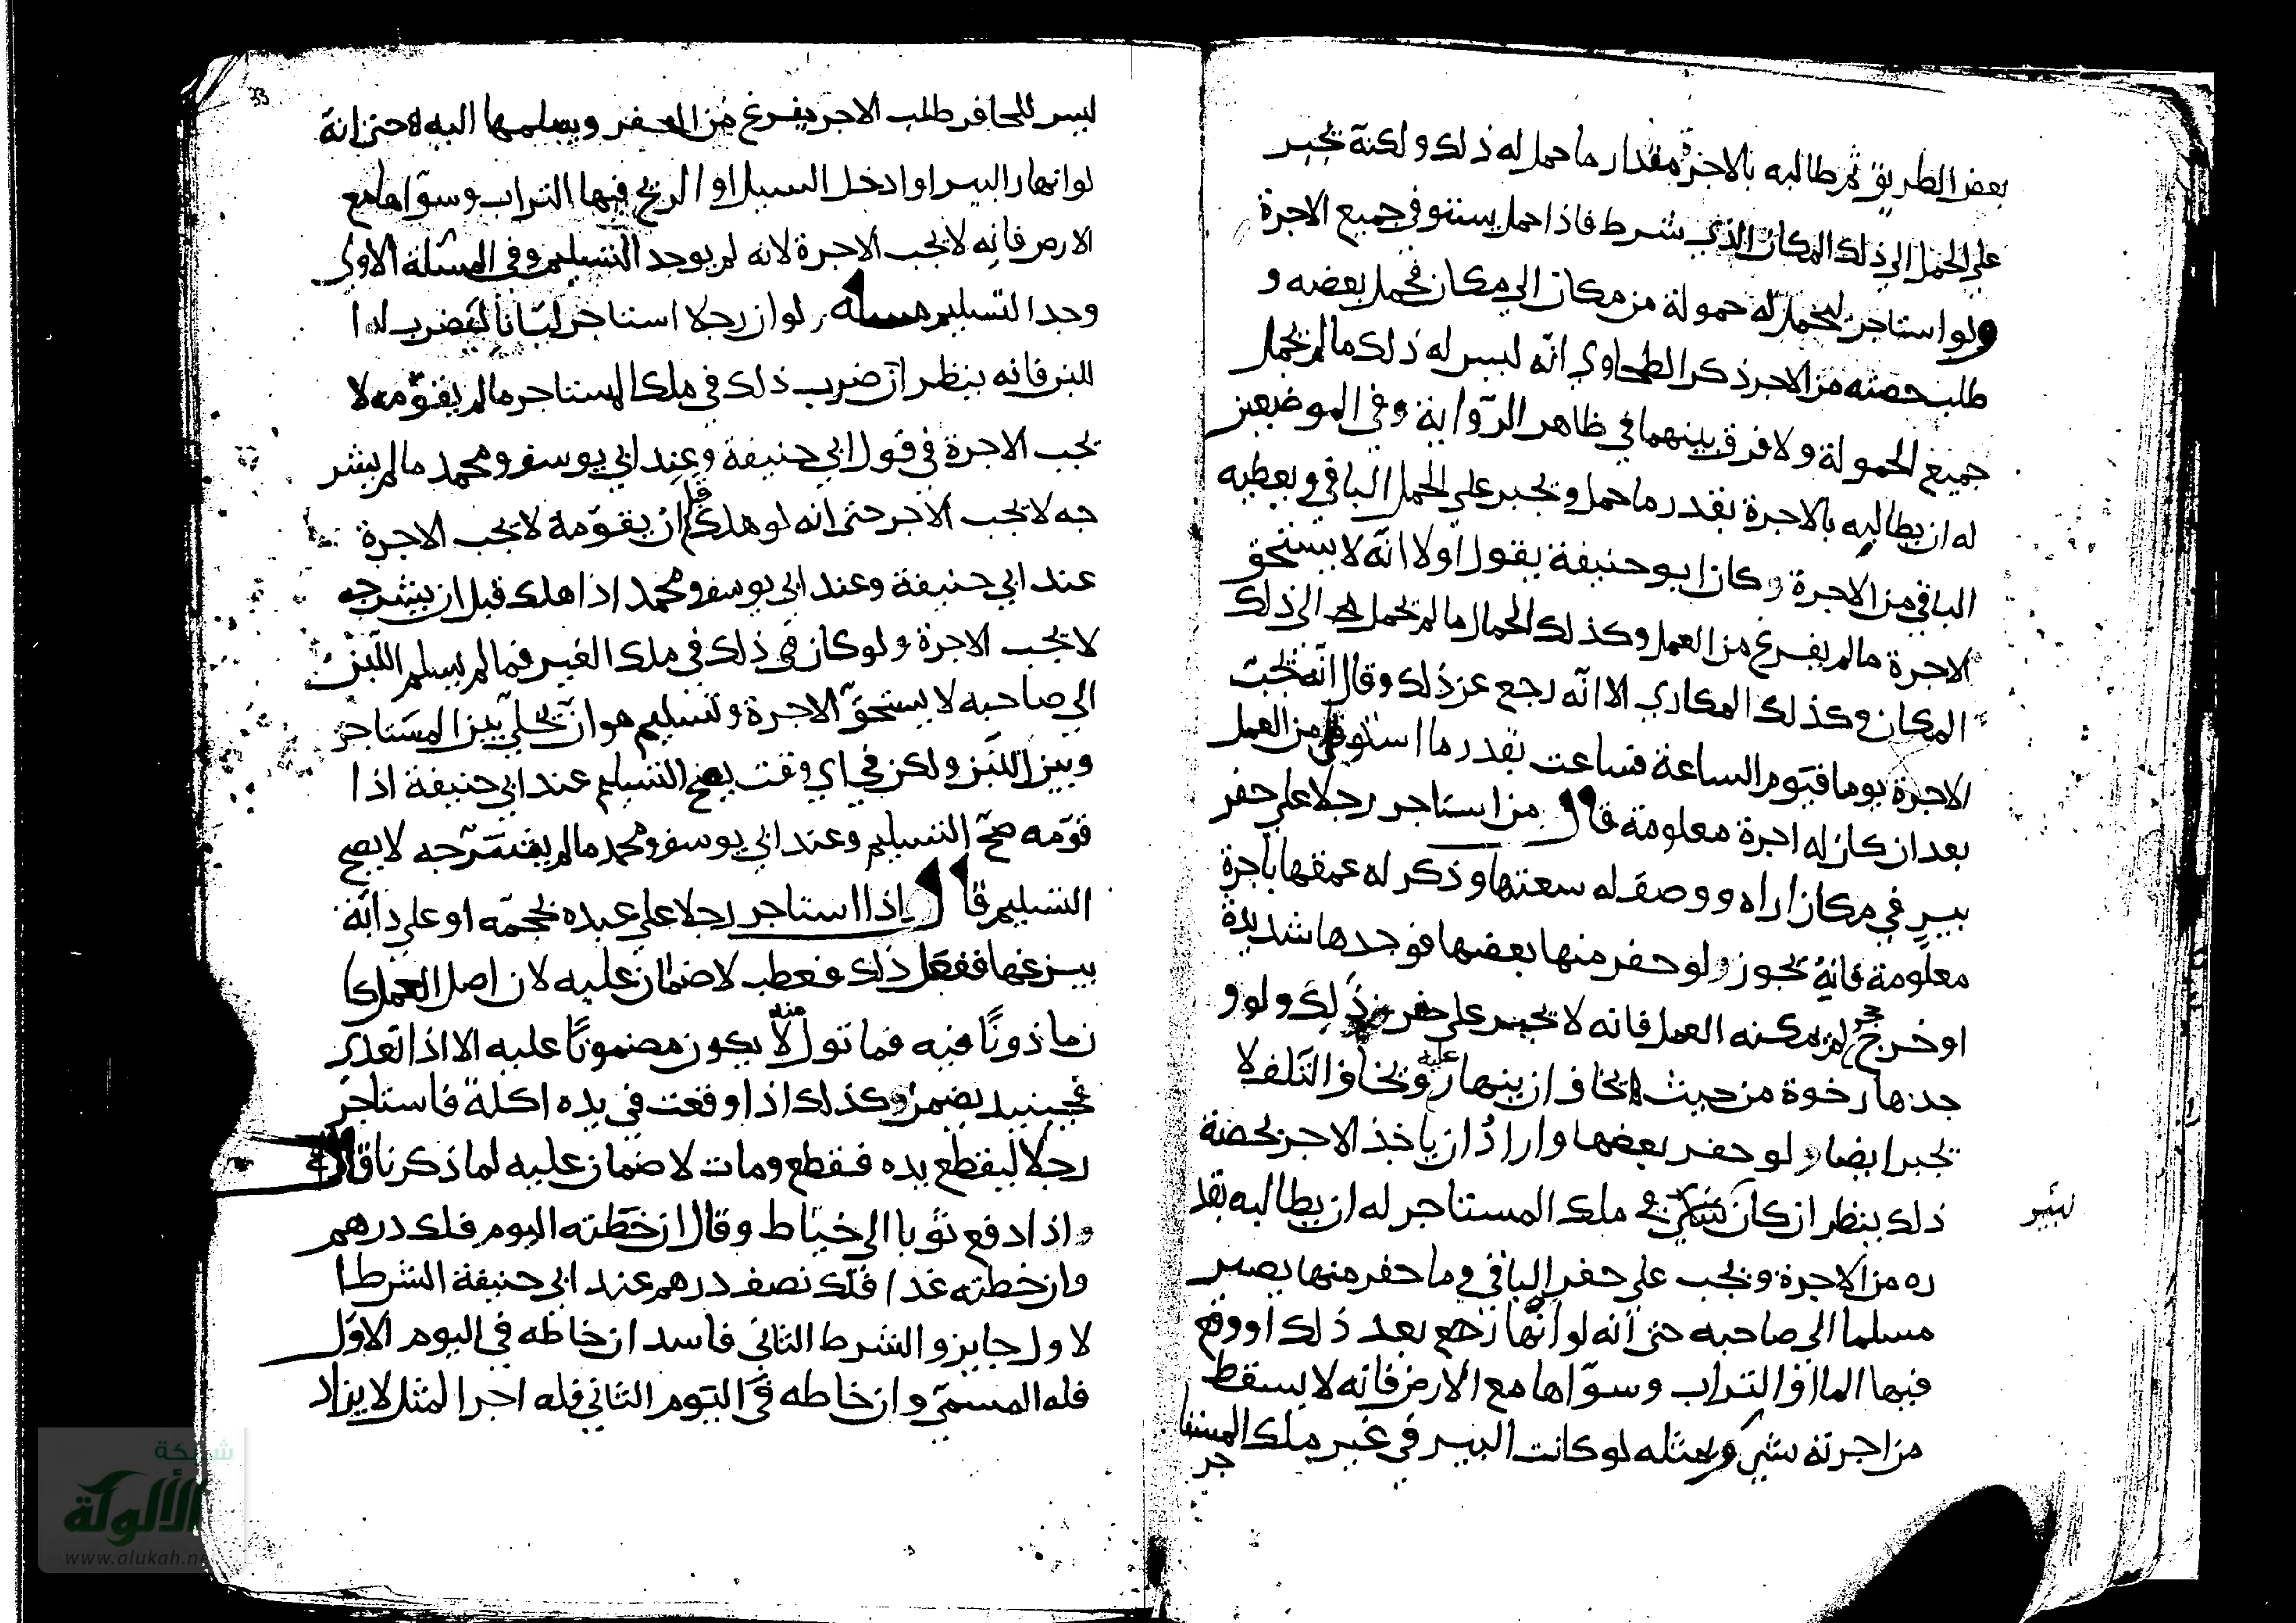 بعض الطريق ثم طالبه بالاجرة مقدار ما حمل له ذلك ولكنه يجبر
على الحمل الى ذلك المكان الذي شرط فاذا حمل يستوفي جميع الاجرة
ولو استاجر ليحمل له حمولة من مكان الى مكان فحمل بعضه و
طلب حصته من الاجر ذكر الطحاوي انه ليس له ذلك مالم يحمل
جميع الحمولة ولا فرق بينهما في ظاهر الرواية وفي الموضعين
له ان يطالبه بالاجرة بقدر ما حمل ويجبر على الحمل الباقي ويعطيه
الباقي من الاجرة وكان ابو حنيفة يقول اولا انه لا يستحق
الاجرة مالم يفرغ من العمل وكذلك الحمال مالم يحمل الى ذلك
المكان وكذلك المكاري الا انه رجع عن ذلك وقال انه تجب
الاجرة يوما فيوم الساعة فساعت بقدر ما استوفى من العمل
بعد ان كان له اجرة معلومة قال من استاجر رجلا على حفر
بير في مكان اراه ووصف له سعتها وذكر له عمقها باجرة
معلومة فانه يجوز ولو حفر منها بعضها فوجدها شديدة
او خرج حجر لم يمكنه العمل فانه لا يجبر على حفر ذلك ولو و
جدها رخوة من حيث يخاف ان ينهار عليه ويخاف التلف لا
يجبر ايضا ولو حفر بعضها واراد ان ياخذ الاجر بحصة
ذلك ينظر ان كان في ملك المستاجر له ان يطالبه بقد
ره من الاجرة ويجب على حفر الباقي وما حفر منها يصير
مسلما الى صاحبه حتى انه لو انهارت بعد ذلك او وقع
فيها الما او التراب وسواها مع الارض فانه لا يسقط
من اجرته شي وبمثله لو كانت البير في غير ملك المستا
جر
لبئير
33
ليس للحافر طلب الاجر يفرغ من الحفر ويسلمها اليه حتى انه
لو انهار البير او ادخل السيل او الريح فيها التراب وسواها مع
الارض فانه لا يجب الاجرة لانه لم يوجد التسليم وفي المسئلة الاولى
وجد التسليم مسئله لو ان رجلا استاجر لبانا ليضرب له ا
للبن فانه ينظر ان ضرب ذلك في ملك المستاجر مالم يقومه لا
يجب الاجرة في قول ابي حنيفة وعند ابي يوسف ومحمد مالم يشر
جه لا يجب الاجر حتى انه لو هلك قبل ان يقومه لا يجب الاجرة
عند ابي حنيفة وعند ابي يوسف ومحمد اذا هلك قبل ان يشرجه
لا يجب الاجرة ولو كان ذلك في ملك الغير فما لم يسلم اللبن
الى صاحبه لا يستحق الاجرة وتسليم هو ان يخلي بين المستاجر
وبين اللبن ولكن في اي وقت يصح التسليم عند ابي حنيفة اذا
قومه صح التسليم وعند ابي يوسف ومحمد مالم يشرجه لا يصح
التسليم قال اذا استاجر رجلا على عبده يحجمه او على دابة
يبزغها ففعل ذلك فعطب لا ضمان عليه لان اصل العمل كا
ن ماذونا فيه فما تولد منه لا يكون مضمونا عليه الا اذا تعدى
فحينيد يضمن وكذلك اذا وقعت في يده اكلة فاستاجر
رجلا ليقطع يده فقطع ومات لا ضمان عليه لما ذكرنا قال
واذا دفع ثوبا الى خياط وقال ان خطته اليوم فلك درهم
وان خطته غدا فلك نصف درهم عند ابي حنيفة الشرط ا
لاول جايز والشرط الثاني فاسد ان خاطه في اليوم الاول
فله المسمى وان خاطه في اليوم الثاني فله اجر المثل لا يزاد
شبكة
الألوكة
www.alukah.ne